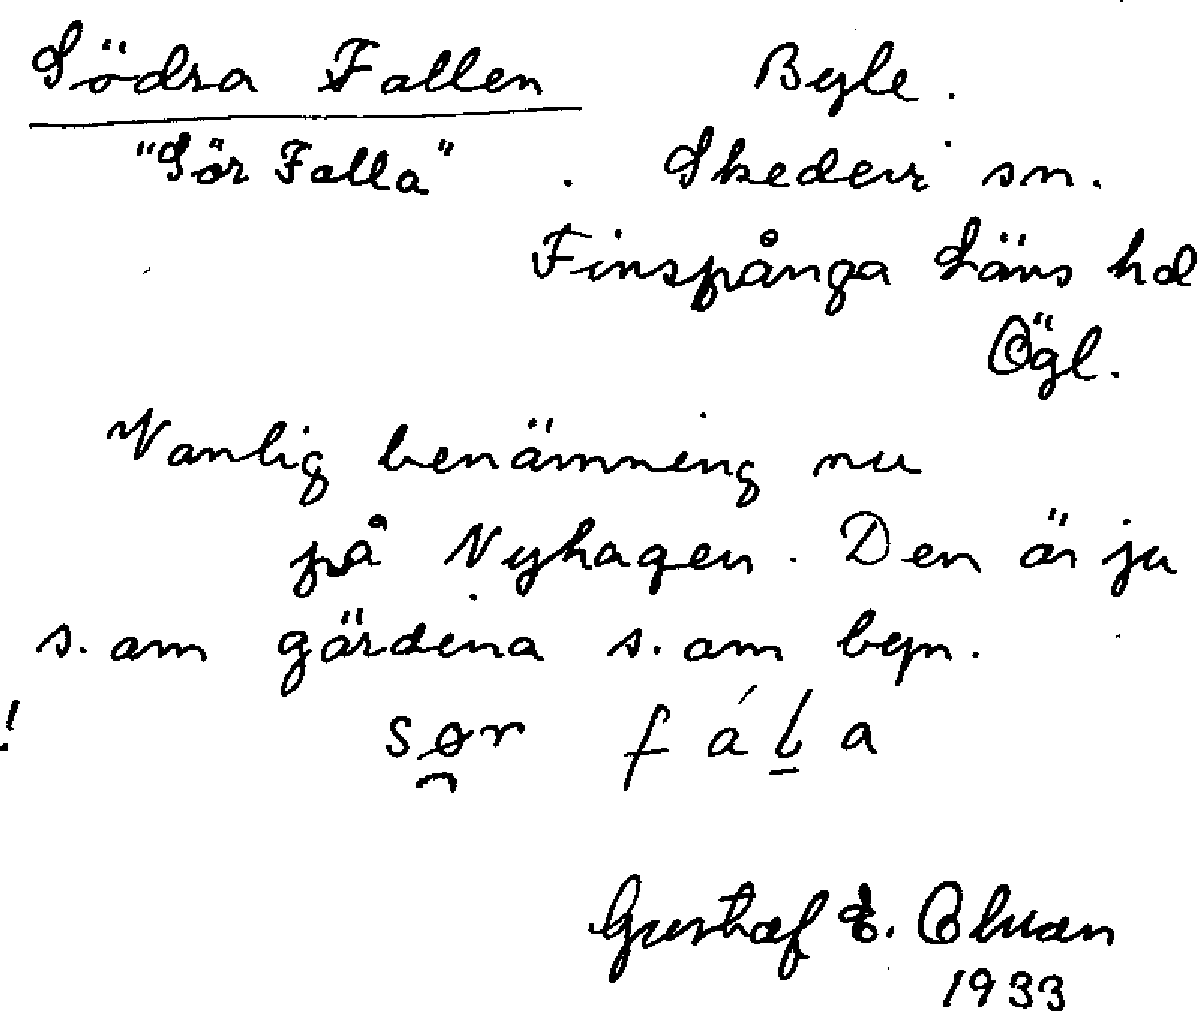 Södra Fallen Byle.
"Sör Falla". Skedevi sn.
Finspånga Läns hd
Ögl.
Vanlig benämning nu
på Nyhagen. Den är ju
s. am gärdena s. am byn.
! sør fála
Gustaf E.
1933